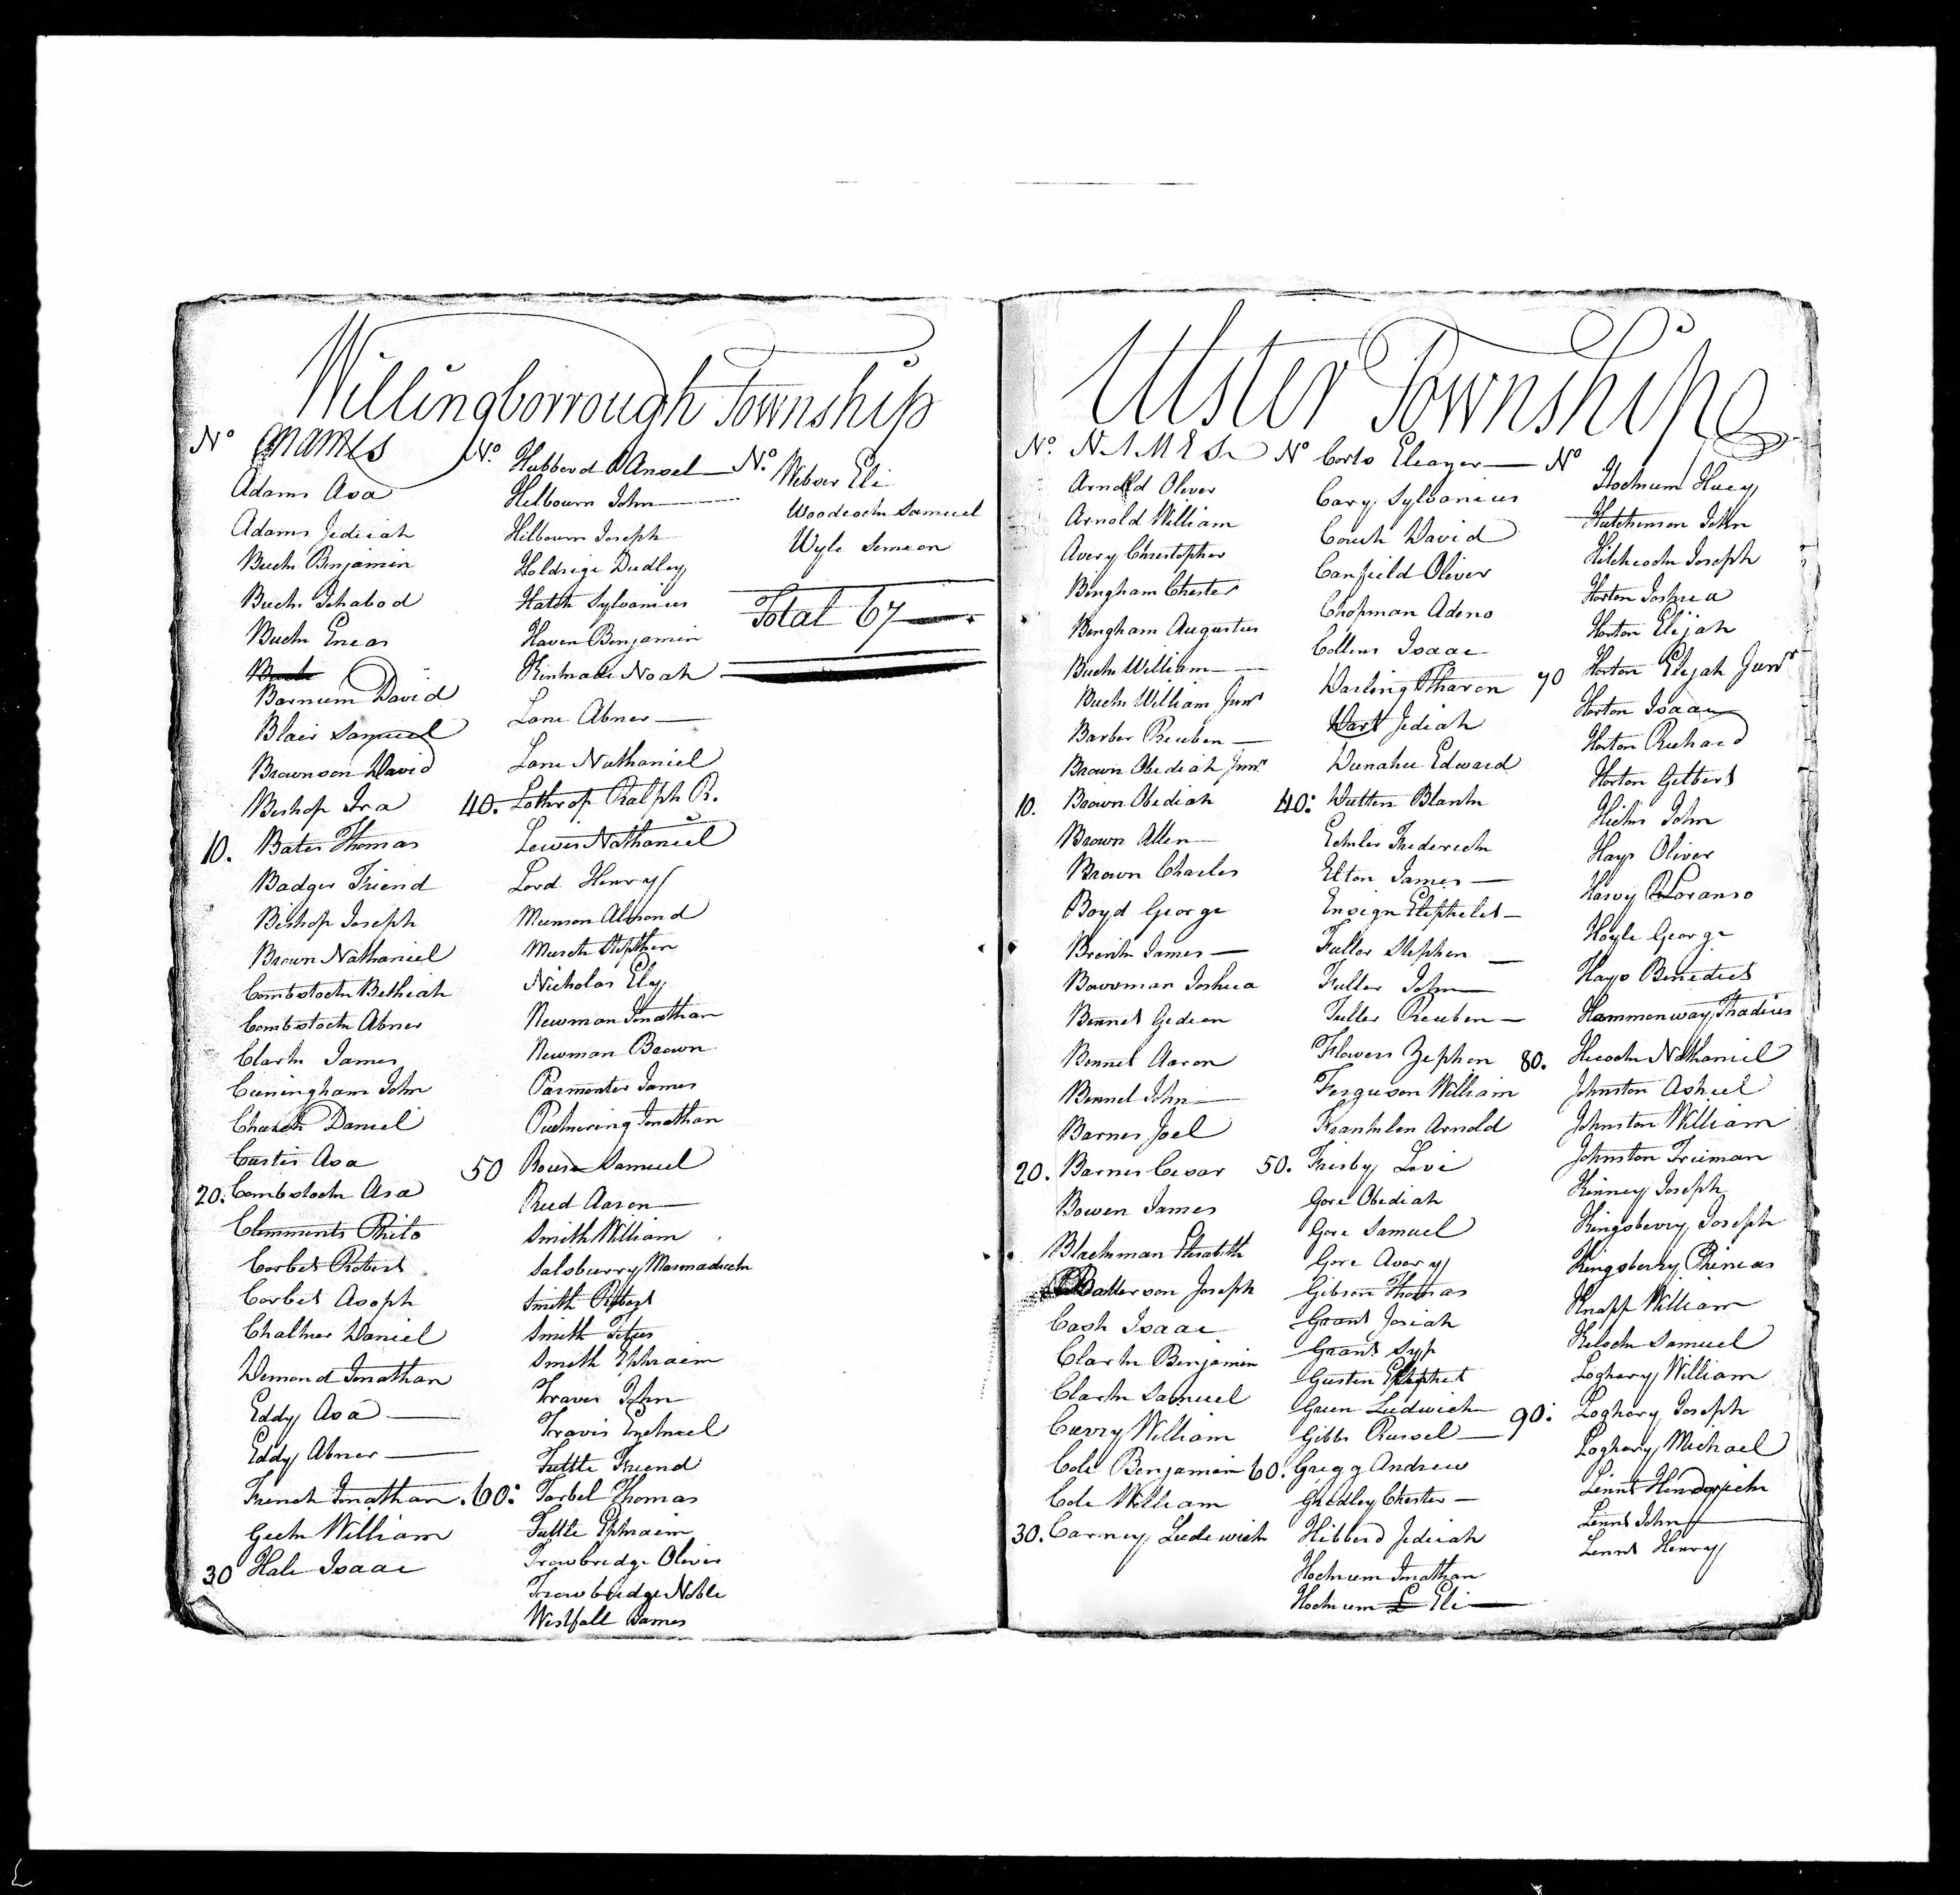 Willingborrough Township
No Names
Adams Asa
Adams Jediah
Buck Benjamin
Buck Ichabod
Buck Eneas
Buck
Barnum David
Blair Samuel
Brownson David
Bishop Ira
10. Bates Thomas
Badger Friend
Bishop Joseph
Brown Nathaniel
Combstock Bethiah
Combstock Abner
Clark James
Cuningham John
Church Daniel
Curtis Asa
20. Combstock Asa
Clemments Philo
Corbet Robert
Corbet Asoph
Chalker Daniel
Demond Jonathan
Eddy Asa
Eddy Abner
French Jonathan
Geek William
30 Hale Isaac
No. Hubberd Ansel
Hilbourn John
Hilbourn Joseph
Holdrige Dudley
Hatch Sylvanius
Haven Benjamin
Kinkade Noah
Lane Abner
Lane Nathaniel
40. Lothrop Ralph R.
Lewis Nathaniel
Lord Henry
Munson Almond
Murch Stepthen
Nicholas Ely
Newman Jonathan
Newman Brown
Parmenter James
Puckering Jonathan
50 Rouse Samuel
Reed Aaron
Smith William
Salsburry Marmaduck
Smith Robert
Smith Titus
Smith Ephraim
Travis John
Travis Ezekiel
Tuttle Friend
60: Tarbel Thomas
Tuttle Ephraim
Trowbredge Oliver
Trowbridge Noble
Westfall James
No. Webser Eli
Woodcock Samuel
Wyle Simeon
Total 67
Ulster Township
No. NAMES
Arnold Oliver
Arnold William
Avery Christopher
Bingham Chester
Bingham Augustus
Buck William
Buck William Junr
Barber Reuben
Brown Obediah Junr
10. Brown Obediah
Brown Allen
Brown Charles
Boyd George
Brink James
Bowman Joshua
Bennet Gideon
Bennet Aaron
Bennet John
Barnes Joel
20. Barnes Cesar
Bowen James
Blackman Elesabith
Batterson Joseph
Cash Isaac
Clark Benjamin
Clark Samuel
Curry William
Cole Benjamin
Cole William
30. Carney Ludewick
No Corts Eleazer
Cary Sylvanius
Couch David
Canfield Oliver
Chapman Adeno
Collins Isaac
Darling Tharon
Dart Jediah
Dunahu Edward
40: Dutten Blank
Eckler Frederick
Elton James
Ensign Eliphelet
Fuller Stephen
Fuller John
Fuller Reuben
Flowers Zephon
Ferguson William
Franklen Arnold
50. Frisby Levi
Gore Obediah
Gore Samuel
Gore Avery
Gibson Thomas
Grant Josiah
Grant Syp
Gusten Eliphet
Green Ludwick
Gibbs Russel
60. Gregg Andrew
Gridley Chester
Hibberd Jediah
Hockum Jonathan
Hockum Eli
No
Hockum Huey
Hutchinson John
Hitchcock Joseph
Horton Joshua
Horton Elijah
70 Horton Elijah Junr
Horton Isaac
Horton Richard
Horton Gilbert
Hicks John
Hays Oliver
Harvy Loranso
Hoyle George
Hays Benedict
Hammenway Thadius
80. Hecock Nathaniel
Johnston Ashiel
Johnston William
Johnston Friiman
Kinney Joseph
Kingsberry Joseph
Kingsberry Phineas
Knapp William
Kelock Samuel
Loghary William
90: Loghary Joseph
Loghary Michael
Lennt Hendrick
Lennt John
Lennt Henry